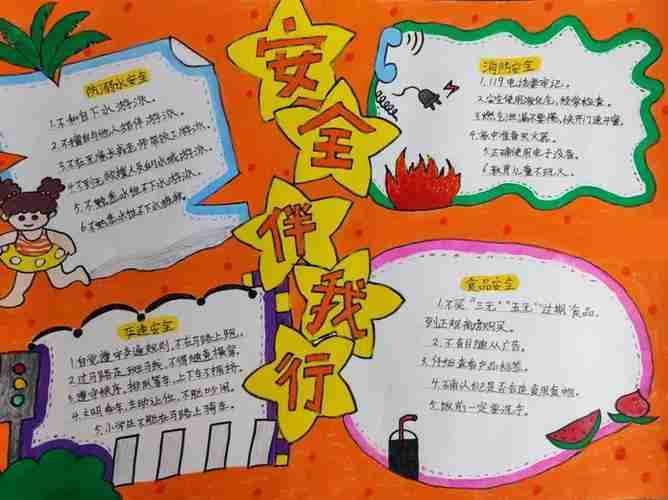 安全伴我行
防溺水安全
1.不私自下水游泳。
2.不擅自与他人结伴游泳。
3.不在无家长或老师带领下游泳。
4.不到无救援人员的水域游泳。
5.不熟悉水性不下水游泳。
6.不熟悉水性不下水施救。
消防安全
1.119电话要牢记。
2.安全使用液化气,经常检查。
3.燃气泄漏不要慌,快开门速开窗。
4.家中准备灭火器。
5.正确使用电子设备。
6.教育儿童不玩火。
交通安全
1.自觉遵守交通规则,不在马路上跑。
2.过马路走斑马线,不得随意横穿。
3.遵守秩序,排队等车,上下车不拥挤。
4.文明乘车,主动让位,不能吵闹。
5.小学生不能在马路上骑车。
食品安全
1.不买"三无""五无"过期食品,
到正规商店购买。
2.不盲目随从广告。
3.仔细查看产品标签。
4.确认自己是否合适食用食物。
5.饭前一定要洗手。